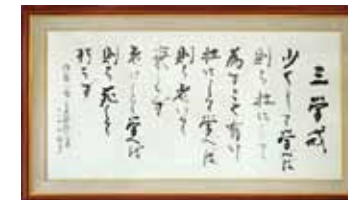 三学戒
少くして学べば
則ち壮にして
為すこと有り
壮にして学べば
則ち老いて
衰えず
老いて学べば
則ち死して
朽ちず